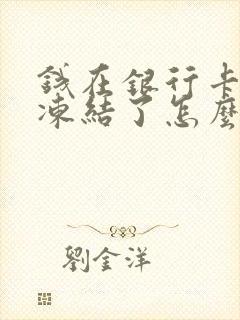 錢在銀行卡
凍結了怎麼
劉金洋